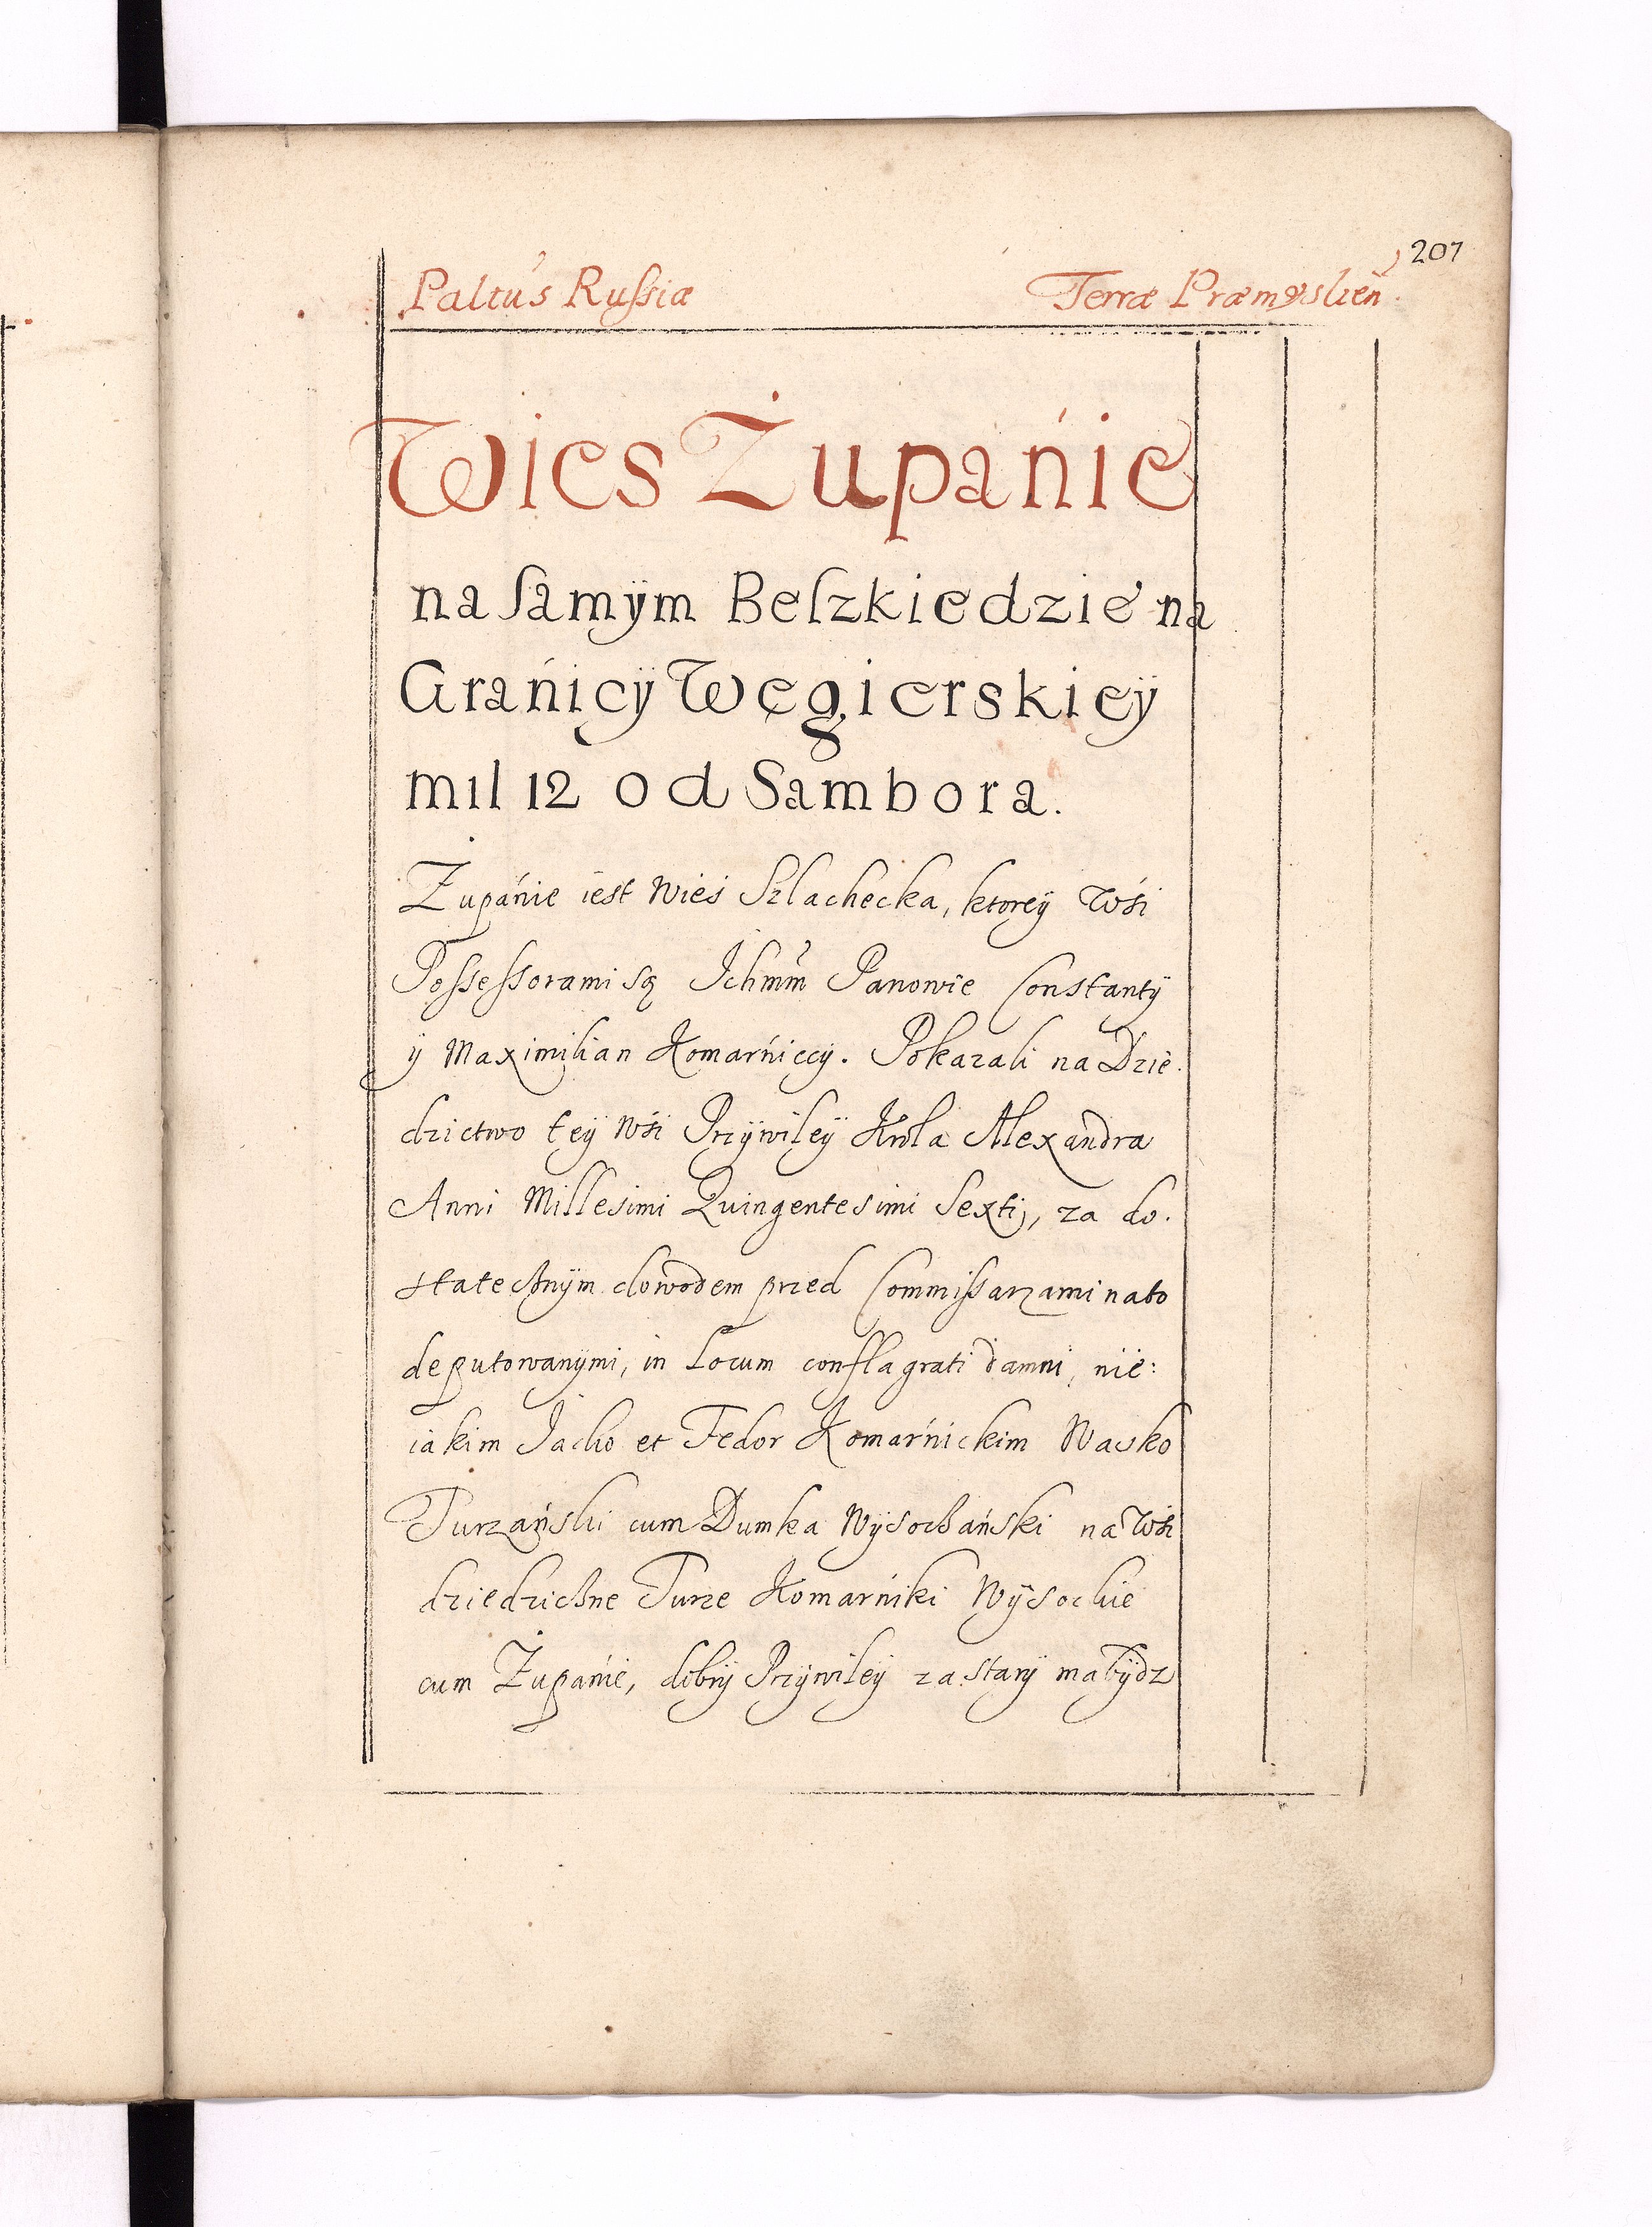 207
Paltus Russiæ Terræ Præmyslien
Wies Żupańie
na samÿm Belzkiedzie na
Grańicÿ Węgierskieÿ
mil 12 od Sambora.
Żupańie iest Wieś Szlachecka, ktoreÿ Wśi
Possessorami są Ichmm Panowie Constantÿ
ÿ Maximilian Komarńiccÿ. Pokazali na Dzie.
dzictwo teÿ Wśi Przÿwileÿ Krola Alexandra
Anni Millesimi Quingentesimi Sexti, za do.
statecznÿm dowodem przed Commissarzami nato
deputowanÿmi, in Locum conflagrati damni, nie:
iakim Jacko et Fedor Komarńickim Wasko
Turzański cum Dumka Wÿsoczański na Wśi
dziedziczne Turze Komarńiki Wÿsockie
cum Żupańie, dobrÿ Przÿwileÿ za starÿ ma bÿdz